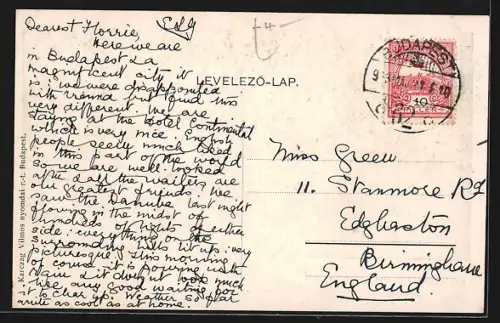 Dearest Florrie,
Here we are
in Budapest & a
magnificent city it
is: we were disappointed
with round but find this
very different. We are
staying at the Hotel Continental
which is very nice. English
people seemly much liked
in this part of the world
so we are well looked
after & all the waiters are
our greatest friends. We
saw the Danube last night
flowing in the midst of
hundreds of lights of either
side: everything on the
surrounding hills lit up: very
picturesque. This morning
of course it is pouring with
rain & it doesn't look much
like any good waiting for
it to clear up. Weather so far
quite as cool as at home.
LEVELEZŐ-LAP.
BUDAPEST
10
Miss Green
11. Stanmore Rd
Edgbaston
Birmingham
England.
J. Karczag Vilmos nyomdai r.-t. Budapest.